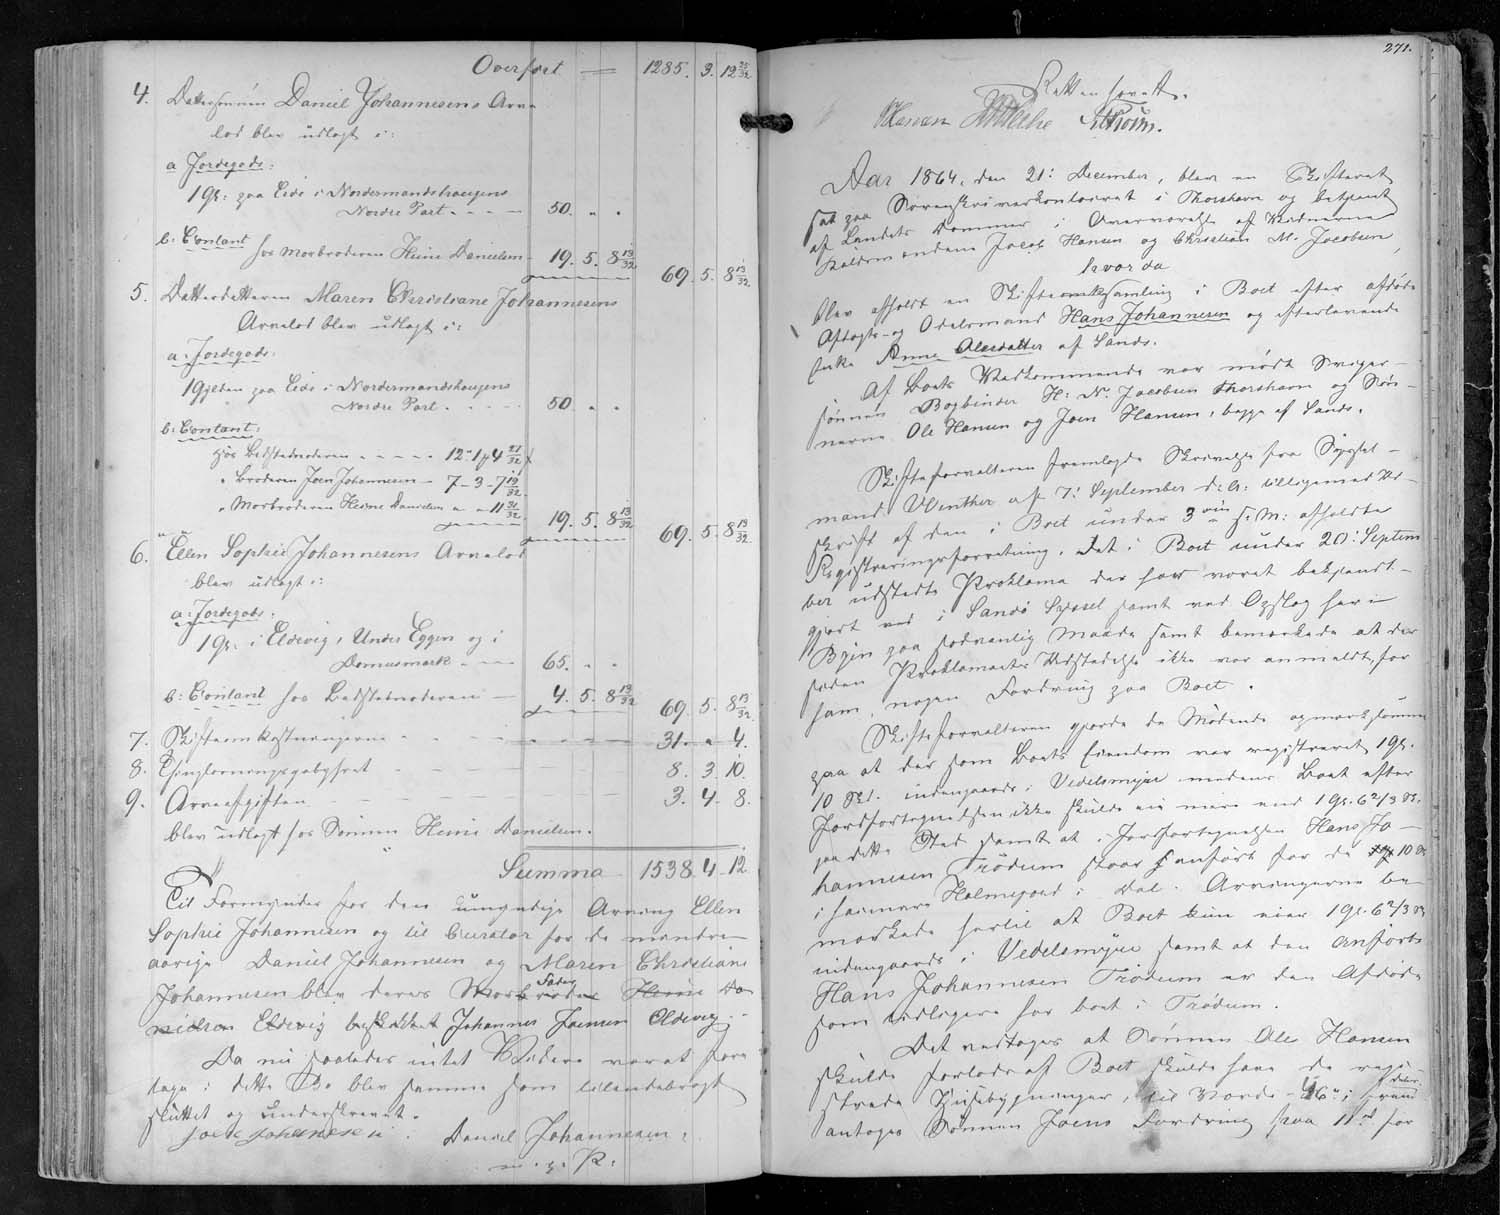 Overført = 1285. 3. 12 25/32
4. Dattersønnen Daniel Johannesens Arve-
lod blev udlagt i:
a Jordegods:
1 Gl: paa Eide i Nordermandshaugens
Nordre Part - - - 50. " "
b: Contant hos Morbroderen Heine Danielsen - 19. 5. 8 13/32 69. 5. 8 13/32
5. Datterdatteren Maren Christiane Johannesens
Arvelod blev udlagt i:
a: Jordegods:
1 Gylden paa Eide i Nordermandshaugens
Nordre Part - - - 50 " "
b: Contant:
hos Bedstemoderen - - - - 12 - 1 4 27/32
" Broderen Joen Johannesen - 7 - 3 - 7 19/32
" Morbroderen Heine Danielsen " " 11 31/32 19. 5. 8 13/32 69. 5. 8 13/32
6. Ellen Sophie Johannesens Arvelod
blev udlagt i:
a: Jordegods.
1 Gl: i Eldevig, Under Eggen og i
Domusmark - - - 65. " "
b: Contant hos Bedstemoderen - 4. 5. 8 13/32 69. 5. 8 13/32
7. Skifteomkostningerne - - - 31. " 4.
8. Thinglæsningsgebyhret - - - 8. 3. 10.
9. Arveafgiften - - - 3. 4. 8.
blev udlagt hos Sønnen Heine Danielsen.
Summa 1538. 4 - 12
Til Formynder for den umyndige Arving Ellen
Sophie Johannesen og til Curator for de mindre-
aarige Daniel Johannesen og Maren Christiane
Johannesen blev deres Morbroder Fader Heine Da-
nielsen Eldevig beskikket Johannes Joensen Eldevig. -
Da nu saaledes intet Videre var at fore
tage i dette Bo blev samme som tilendebragt
sluttet og underskrevet.
Joen Johannesen. Daniel Johannesen.
m. p. P:
271.
Retten hævet.
Hansen HMüller
Aar 1864, den 21: December, blev en Skifteret
sat paa Sorenskriverkontoret i Thorshavn og betjent
af Landets Dommer i Overværelse af Vidnerne
Jacob Hansen og Christian M. Jacobsen,
hvorda
blev afholdt en Skiftesamling i Boet efter afdøde
Aftægts- og Odelsmand Hans Johannesen og efterlevende
Enke Anne Olesdatter af Sands.
Af Boets Vedkommende var mødt Sviger-
sønnen Bogbinder H: N. Jacobsen Thorshavn og Søn-
nerne Ole Hansen og Joen Hansen, begge af Sands.
Skifteforvalteren fremlagde Skrivelse fra Syssel-
mand Winther af 7: September d: A: tilligemed Ud-
skrift af den i Boet under 3 s: M: afholdte
Registreringsforretning. Det i Boet under 20: Septem
ber udstedte Proklama der har været bekjendt-
gjort ved i Sandø Syssel samt ved Opslag her i
Byen paa sædvanlig Maade samt bemærkede at der
siden Proklamaets Udstedelse ikke var anmeldt for
ham nogen Fordring paa Boet.
Skifteforvalteren gjorde de Mødende opmærksomme
paa at der som Boets Eiendom var registreret 1 Gl.
10 Sk. indengaards i Vedelsmyre medens Boet efter
Jordfortegnelsen ikke skulde eie mere end 1 Gl. 6 2/3 Sk.
paa dette Sted samt at i Jordfortegnelsen Hans Jo-
hannesen Trødum staar anført for de 10 Sk
i Holmegaard i Dal. Arvingerne be-
mærkede hertil at Boet kun eier 1 Gl. 6 2/3 Sk
indengaards i Vedelsmyre samt at den anførte
Hans Johannesen Trødum er den Afdøde
som tidligere har boet i Trødum.
Det vedtoges at Sønnen Ole Hansen
skulde forlods af Boet skulde have de regi-
strerede Husebygninger, til Værdi - 46 rd,
antoges Sønnen Joens Fordring paa 11 rd for